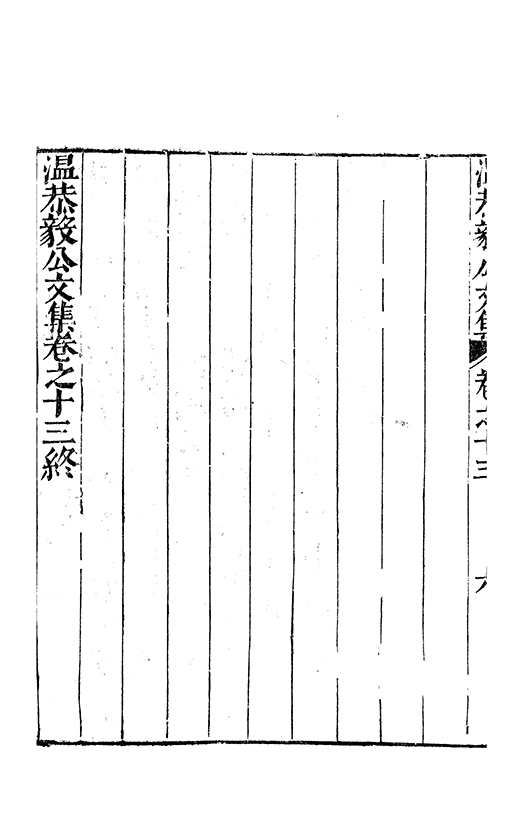 温恭毅公文集 卷之十三 六
温恭毅公文集卷之十三終